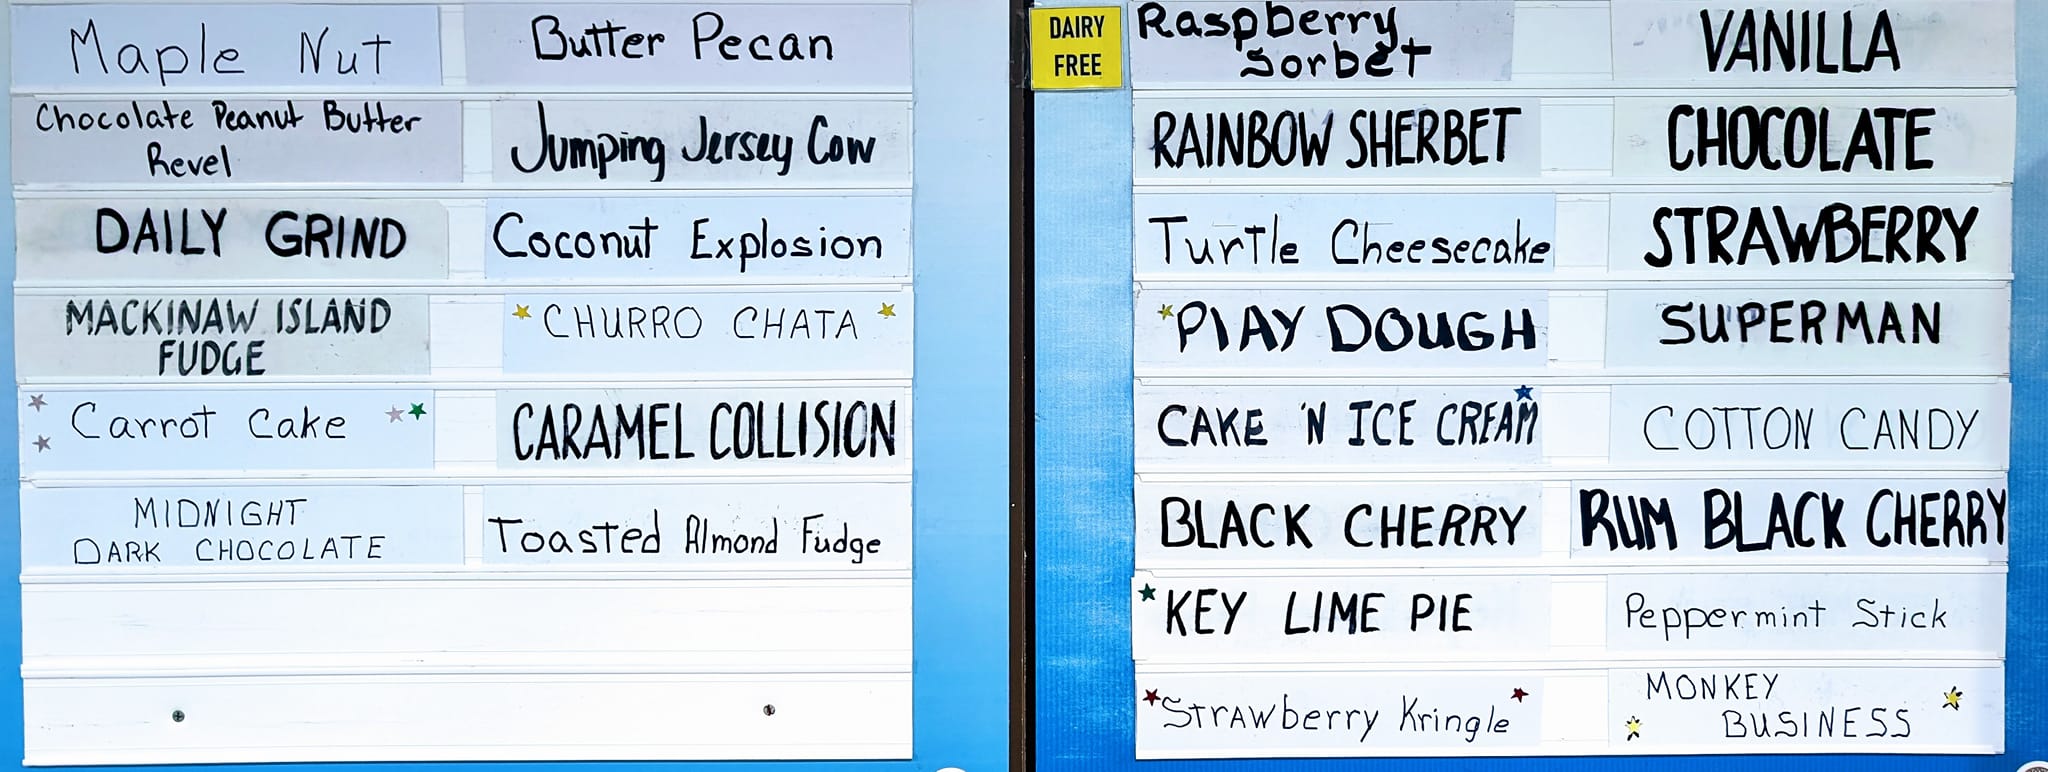 Maple Nut
Butter Pecan
Chocolate Peanut Butter
Revel
Jumping Jersey Cow
DAILY GRIND
Coconut Explosion
MACKINAW ISLAND
FUDGE
CHURRO CHATA
Carrot Cake
CARAMEL COLLISION
MIDNIGHT
DARK CHOCOLATE
Toasted Almond Fudge
DAIRY
FREE
Raspberry
Sorbet
VANILLA
RAINBOW SHERBET
CHOCOLATE
Turtle Cheesecake
STRAWBERRY
PLAY DOUGH
SUPERMAN
CAKE 'N ICE CREAM
COTTON CANDY
BLACK CHERRY
RUM BLACK CHERRY
KEY LIME PIE
Peppermint Stick
Strawberry Kringle
MONKEY
BUSINESS